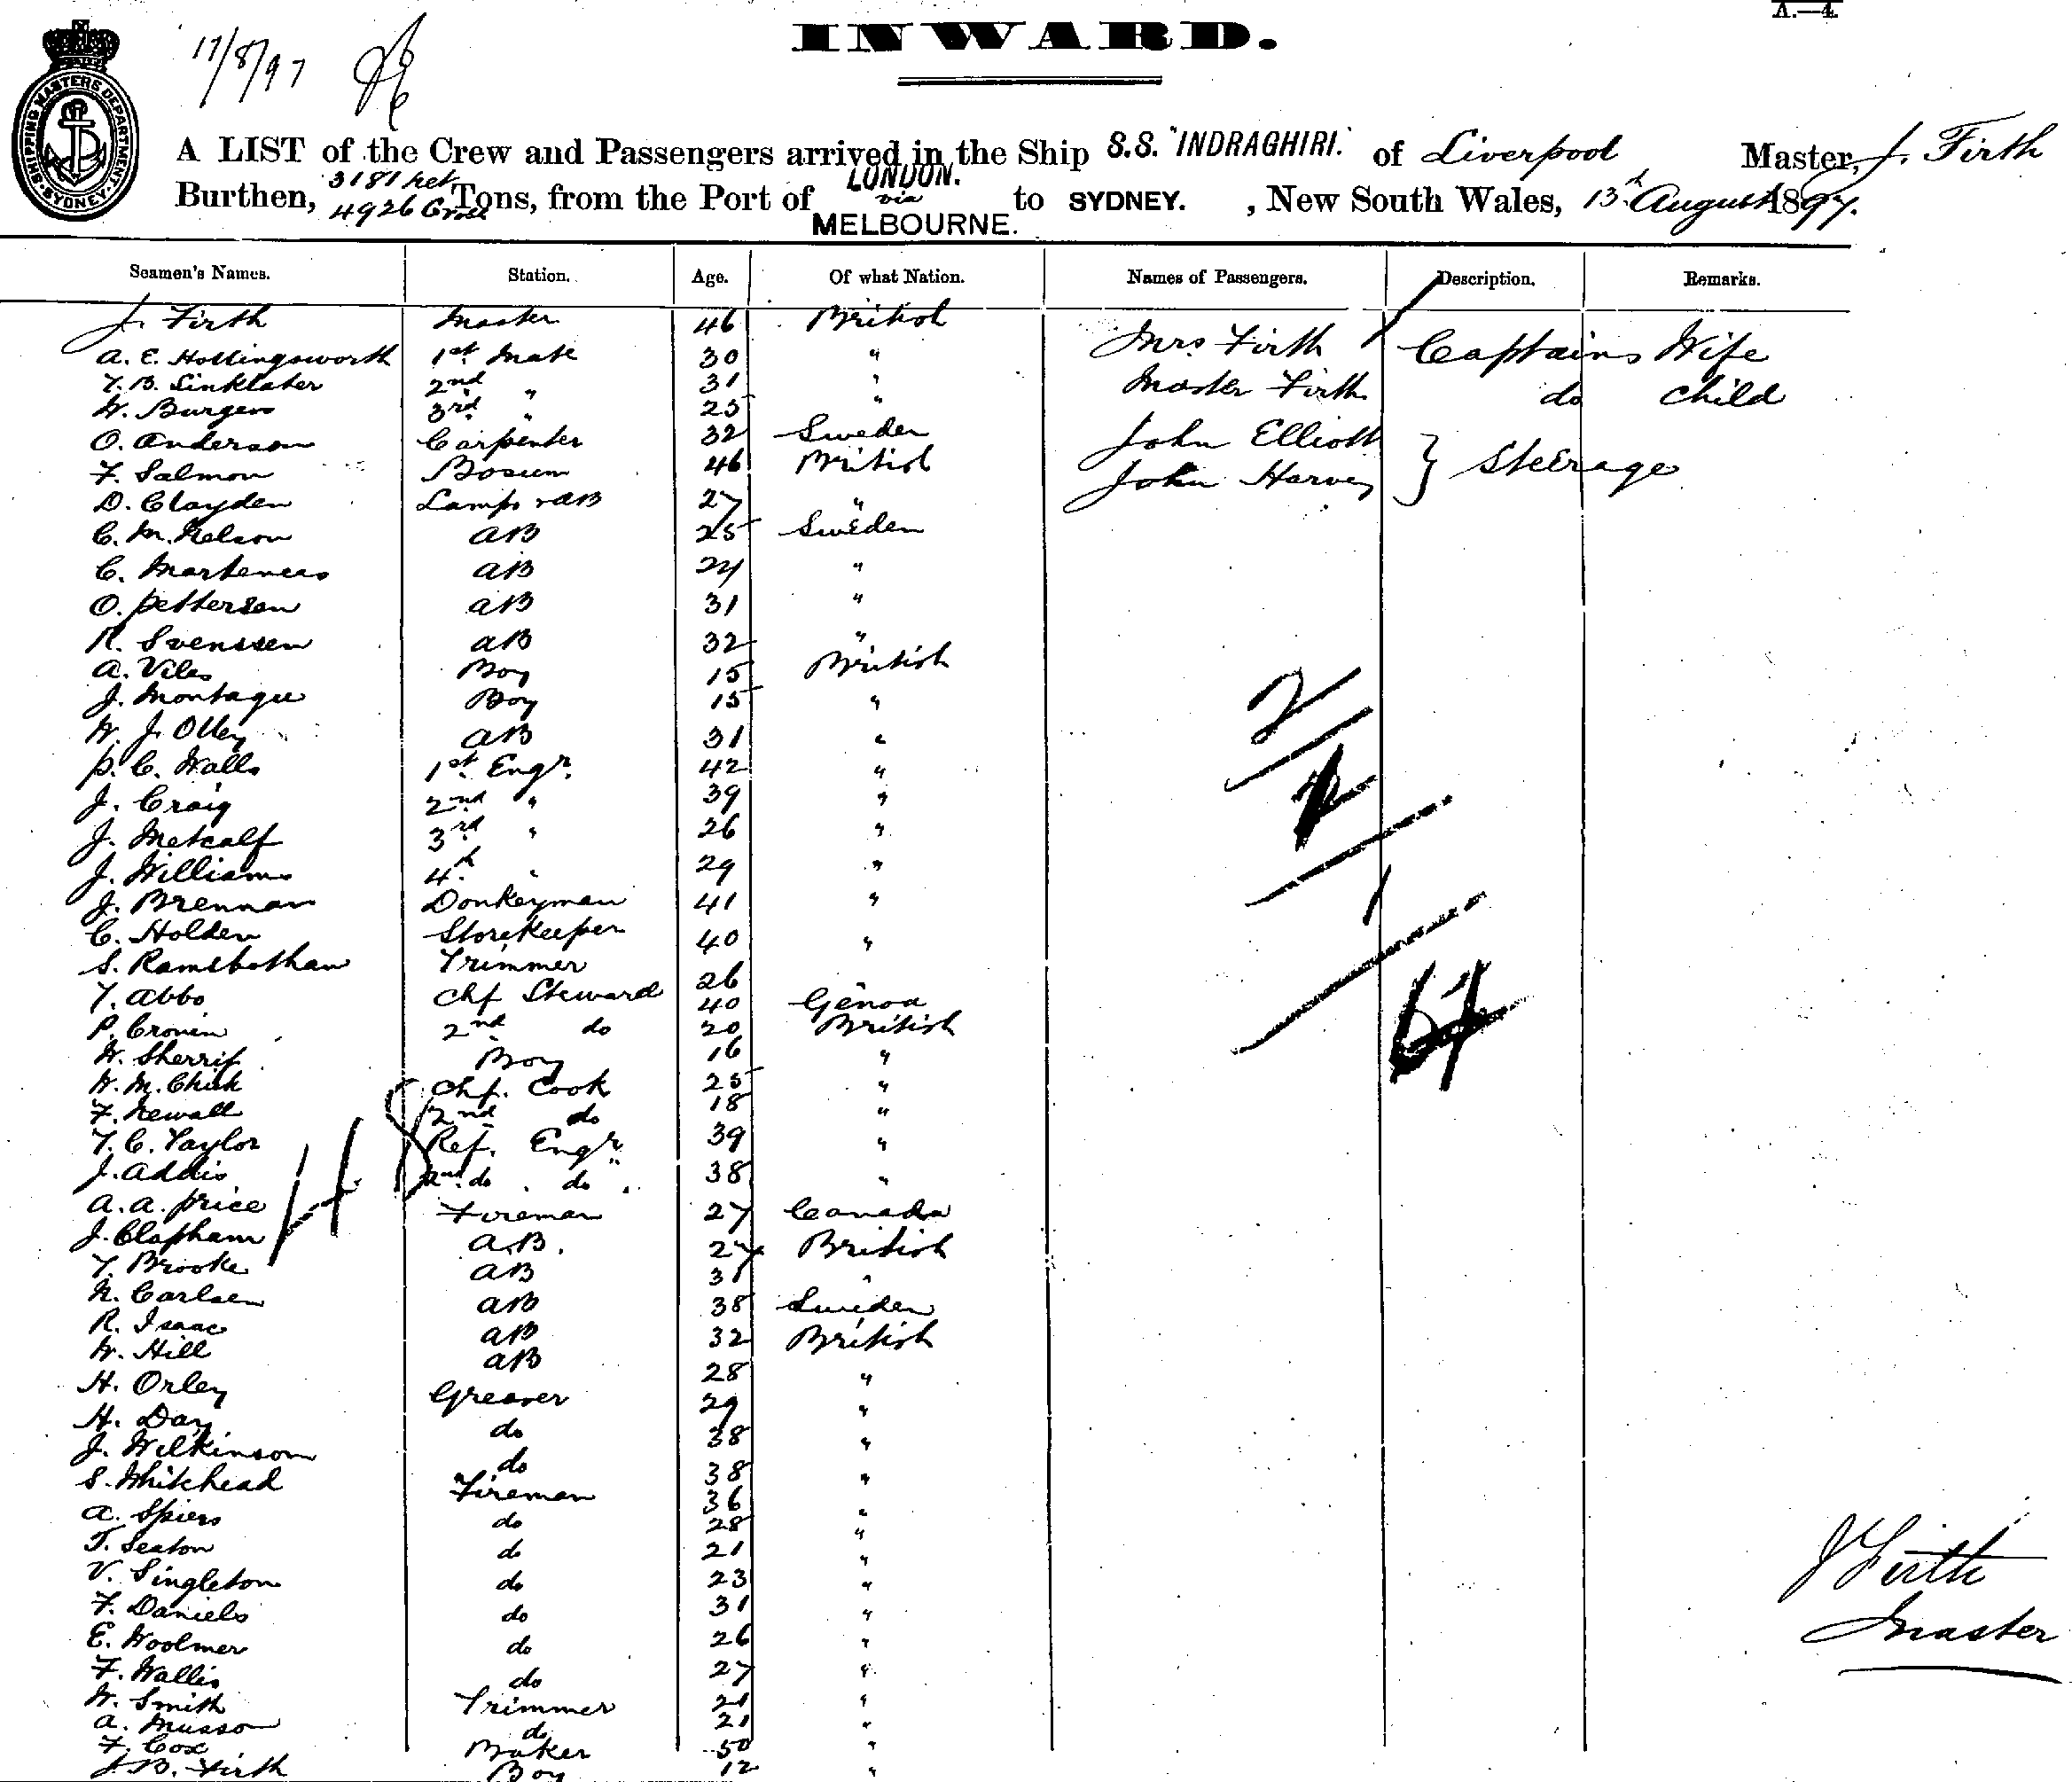 A.—4.
INWARD.
17/8/97
SHIPPING MASTERS DEPARTMENT SYDNEY
A LIST of the Crew and Passengers arrived in the Ship S.S. "INDRAGHIRI." of Liverpool Master, J. Firth
Burthen, 3181 net 4926 Gross Tons, from the Port of LONDON. via MELBOURNE. to SYDNEY. , New South Wales, 13th August 1897.
Seamen's Names. Station. Age. Of what Nation. Names of Passengers. Description. Remarks.
J. Firth Master 46 British Mrs Firth Captains Wife
A. E. Hollingsworth 1st Mate 30 "
T. B. Sinklater 2nd " 31 " Master Firth do child
W. Burgess 3rd " 25 "
O. Anderson Carpenter 32 Sweden John Elliott } Steerage
F. Salmon Bosun 46 British John Harvey
D. Clayden Lamps & AB 27 "
C. M. Nelson AB 25 Sweden
C. Martenees AB 24 "
O. Pettersen AB 31 "
R. Svenssen AB 32 "
A. Viles Boy 15 British
J. Montague Boy 15 "
W. J. Olley AB 31 "
P. C. Walls 1st Engr. 42 "
J. Craig 2nd " 39 "
J. Metcalf 3rd " 26 "
J. Williams 4th " 29 "
J. Brennan Donkeyman 41 "
C. Holden Storekeeper 40 "
S. Ramsbotham Trimmer 26 "
T. Abbo Chf Steward 40 Genoa
P. Cronin 2nd do 20 British
W. Sherrif Boy 16 "
W. M. Chuk Chf. Cook 25 "
F. Newall 2nd do 18 "
T. C. Taylor Ref. Engr. 39 "
J. Addis 2nd do do 38 "
A. A. Price Fireman 27 Canada
J. Clapham A.B. 27 British
T. Brooke AB 31 "
N. Carlsen AB 38 Sweden
R. Isaac AB 32 British
W. Hill AB 28 "
H. Orley Greaser 29 "
H. Day do 38 "
J. Wilkinson do 38 "
S. Whitehead Fireman 36 "
A. Spiers do 28 "
T. Seaton do 21 "
V. Singleton do 23 "
F. Daniels do 31 "
E. Woolmer do 26 "
F. Wallis do 27 "
W. Smith Trimmer 21 "
A. Musson do 21 "
F. Cox Baker 50 "
J. B. Firth Boy 12 "
48
2
J Firth
Master